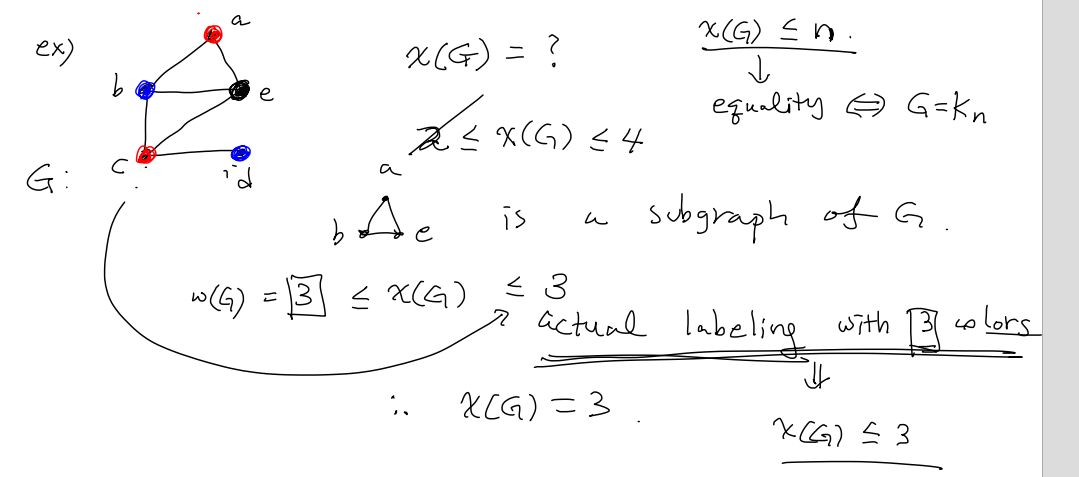 ex)
a
b
e
c
d
G:
χ(G) = ?
χ(G) ≤ n.
↓
equality ⇔ G=Kn
2 ≤ χ(G) ≤ 4
a
b e is a subgraph of G.
ω(G) = 3 ≤ χ(G) ≤ 3
actual labeling with 3 colors
⇓
∴ χ(G) = 3.
χ(G) ≤ 3